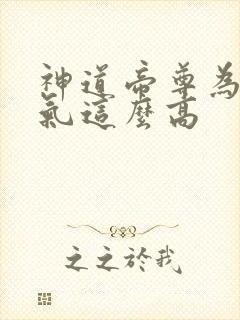 神道帝尊為
氣這麼高
之之於我